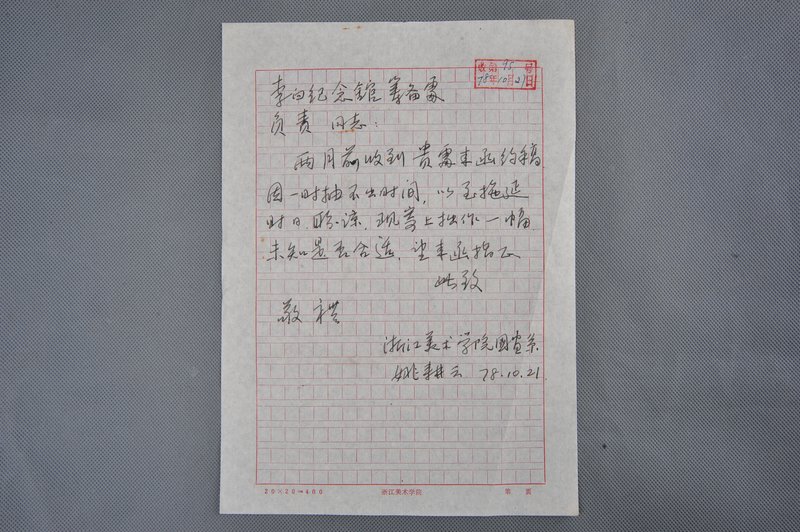 收第 95 号
78年10月21日
李白纪念馆筹备处
负责 同志：
两月前收到贵处来函约稿
因一时抽不出时间，以至拖延
时日，盼谅，现寄上拙作一幅，
未知是否合适，望来函指正
此致
敬礼
浙江美术学院国画系
姚耕云 78.10.21
20×20=400 浙江美术学院 第 页